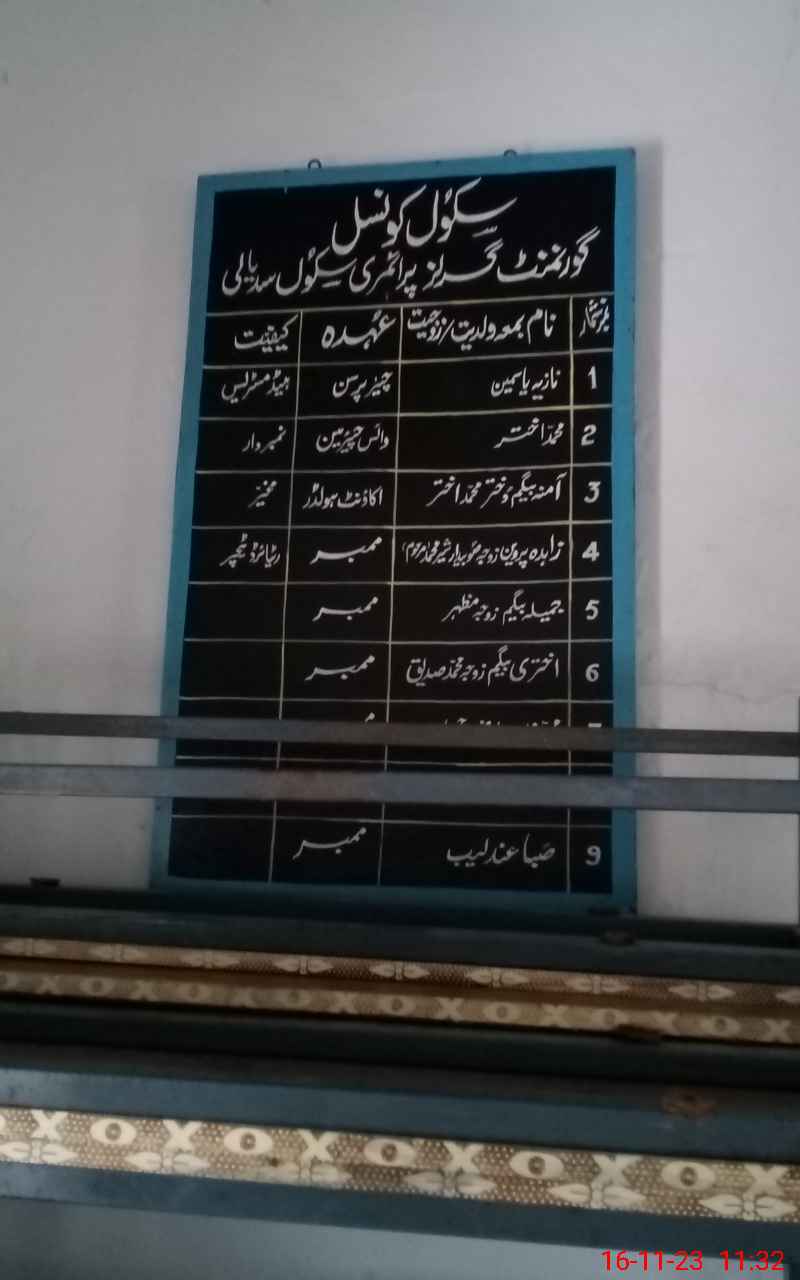 سکول کونسل
گورنمنٹ گرلز پرائمری سکول سدیالی
نمبر شمار نام بمعہ ولدیت/زوجیت عہدہ کیفیت
1 نازیہ یاسمین چیئر پرسن ہیڈ مسٹریس
2 محمد اختر وائس چیئرمین نمبر دار
3 آمنہ بیگم دختر محمد اختر اکاؤنٹ ہولڈر مخیر
4 زاہدہ پروین زوجہ صوبیدار شیر محمد مرحوم ممبر ریٹائرڈ ٹیچر
5 جمیلہ بیگم زوجہ مظہر ممبر
6 اختری بیگم زوجہ محمد صدیق ممبر
9 صبا عندلیب ممبر
OXOXOXOXOXOXOX
XOXOXOXOXOXOX
16-11-23 11:32